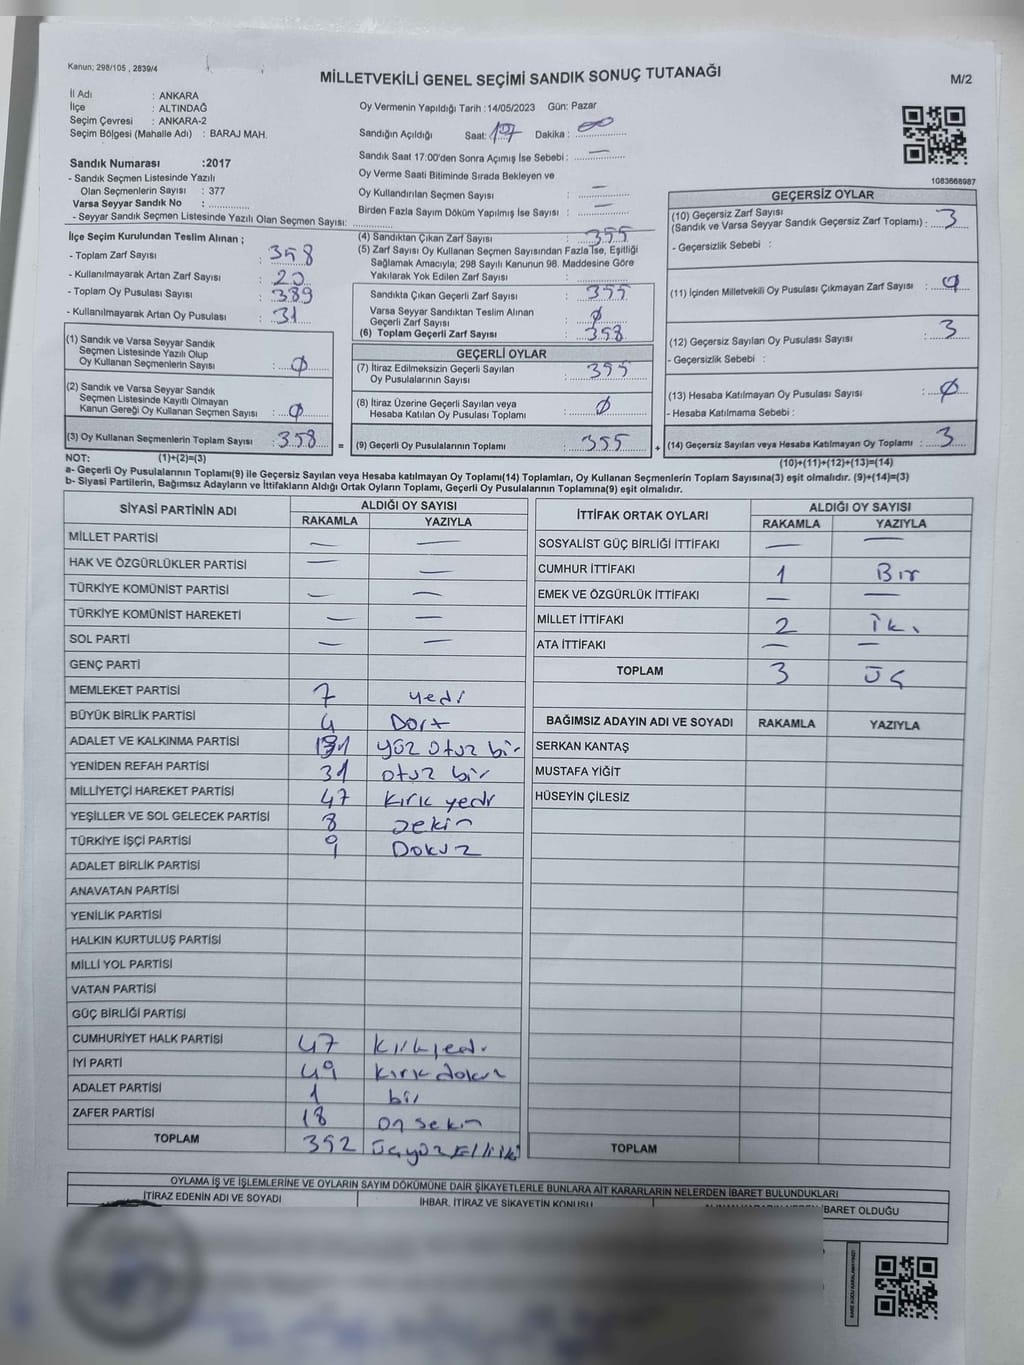 Kanun; 298/105 , 2839/4
MİLLETVEKİLİ GENEL SEÇİMİ SANDIK SONUÇ TUTANAĞI
M/2
İl Adı : ANKARA
İlçe : ALTINDAĞ
Seçim Çevresi : ANKARA-2
Seçim Bölgesi (Mahalle Adı) : BARAJ MAH.
Sandık Numarası :2017
- Sandık Seçmen Listesinde Yazılı
Olan Seçmenlerin Sayısı : 377
Varsa Seyyar Sandık No :
- Seyyar Sandık Seçmen Listesinde Yazılı Olan Seçmen Sayısı:
Oy Vermenin Yapıldığı Tarih :14/05/2023 Gün: Pazar
Sandığın Açıldığı Saat: 17 Dakika : 00
Sandık Saat 17:00'den Sonra Açımış İse Sebebi : —
Oy Verme Saati Bitiminde Sırada Bekleyen ve
Oy Kullandırılan Seçmen Sayısı : —
Birden Fazla Sayım Döküm Yapılmış İse Sayısı : —
1083668987
İlçe Seçim Kurulundan Teslim Alınan ;
- Toplam Zarf Sayısı : 358
- Kullanılmayarak Artan Zarf Sayısı : 20
- Toplam Oy Pusulası Sayısı : 389
- Kullanılmayarak Artan Oy Pusulası : 31
(1) Sandık ve Varsa Seyyar Sandık
Seçmen Listesinde Yazılı Olup
Oy Kullanan Seçmenlerin Sayısı : Ø
(2) Sandık ve Varsa Seyyar Sandık
Seçmen Listesinde Kayıtlı Olmayan
Kanun Gereği Oy Kullanan Seçmen Sayısı : Ø
(3) Oy Kullanan Seçmenlerin Toplam Sayısı : 358
(1)+(2)=(3)
(4) Sandıktan Çıkan Zarf Sayısı : 355
(5) Zarf Sayısı Oy Kullanan Seçmen Sayısından Fazla İse, Eşitliği
Sağlamak Amacıyla; 298 Sayılı Kanunun 98. Maddesine Göre
Yakılarak Yok Edilen Zarf Sayısı :
Sandıkta Çıkan Geçerli Zarf Sayısı : 355
Varsa Seyyar Sandıktan Teslim Alınan
Geçerli Zarf Sayısı : Ø
(6) Toplam Geçerli Zarf Sayısı : 358
GEÇERLİ OYLAR
(7) İtiraz Edilmeksizin Geçerli Sayılan
Oy Pusulalarının Sayısı : 355
(8) İtiraz Üzerine Geçerli Sayılan veya
Hesaba Katılan Oy Pusulası Toplamı : Ø
= (9) Geçerli Oy Pusulalarının Toplamı : 355 +
GEÇERSİZ OYLAR
(10) Geçersiz Zarf Sayısı
(Sandık ve Varsa Seyyar Sandık Geçersiz Zarf Toplamı) : 3
- Geçersizlik Sebebi :
(11) İçinden Milletvekili Oy Pusulası Çıkmayan Zarf Sayısı : Ø
(12) Geçersiz Sayılan Oy Pusulası Sayısı : 3
- Geçersizlik Sebebi :
(13) Hesaba Katılmayan Oy Pusulası Sayısı : Ø
- Hesaba Katılmama Sebebi :
(14) Geçersiz Sayılan veya Hesaba Katılmayan Oy Toplamı : 3
(10)+(11)+(12)+(13)=(14)
NOT:
a- Geçerli Oy Pusulalarının Toplamı(9) ile Geçersiz Sayılan veya Hesaba katılmayan Oy Toplamı(14) Toplamları, Oy Kullanan Seçmenlerin Toplam Sayısına(3) eşit olmalıdır. (9)+(14)=(3)
b- Siyasi Partilerin, Bağımsız Adayların ve İttifakların Aldığı Ortak Oyların Toplamı, Geçerli Oy Pusulalarının Toplamına(9) eşit olmalıdır.
SİYASİ PARTİNİN ADI ALDIĞI OY SAYISI
RAKAMLA YAZIYLA
MİLLET PARTİSİ — —
HAK VE ÖZGÜRLÜKLER PARTİSİ — —
TÜRKİYE KOMÜNİST PARTİSİ — —
TÜRKİYE KOMÜNİST HAREKETİ — —
SOL PARTİ — —
GENÇ PARTİ
MEMLEKET PARTİSİ 7 yedi
BÜYÜK BİRLİK PARTİSİ 4 Dört
ADALET VE KALKINMA PARTİSİ 131 yüz otuz bir
YENİDEN REFAH PARTİSİ 31 otuz bir
MİLLİYETÇİ HAREKET PARTİSİ 47 kırk yedi
YEŞİLLER VE SOL GELECEK PARTİSİ 8 sekiz
TÜRKİYE İŞÇİ PARTİSİ 9 Dokuz
ADALET BİRLİK PARTİSİ
ANAVATAN PARTİSİ
YENİLİK PARTİSİ
HALKIN KURTULUŞ PARTİSİ
MİLLİ YOL PARTİSİ
VATAN PARTİSİ
GÜÇ BİRLİĞİ PARTİSİ
CUMHURİYET HALK PARTİSİ 47 kırkyedi
İYİ PARTİ 49 kırk dokuz
ADALET PARTİSİ 1 bir
ZAFER PARTİSİ 18 on sekiz
TOPLAM 352 üçyüzElliiki
İTTİFAK ORTAK OYLARI ALDIĞI OY SAYISI
RAKAMLA YAZIYLA
SOSYALİST GÜÇ BİRLİĞİ İTTİFAKI — —
CUMHUR İTTİFAKI 1 Bir
EMEK VE ÖZGÜRLÜK İTTİFAKI — —
MİLLET İTTİFAKI 2 İki
ATA İTTİFAKI — —
TOPLAM 3 Üç
BAĞIMSIZ ADAYIN ADI VE SOYADI RAKAMLA YAZIYLA
SERKAN KANTAŞ
MUSTAFA YİĞİT
HÜSEYİN ÇİLESİZ
TOPLAM
OYLAMA İŞ VE İŞLEMLERİNE VE OYLARIN SAYIM DÖKÜMÜNE DAİR ŞİKAYETLERLE BUNLARA AİT KARARLARIN NELERDEN İBARET BULUNDUKLARI
İTİRAZ EDENİN ADI VE SOYADI İHBAR, İTİRAZ VE ŞİKAYETİN KONUSU İBARET OLDUĞU